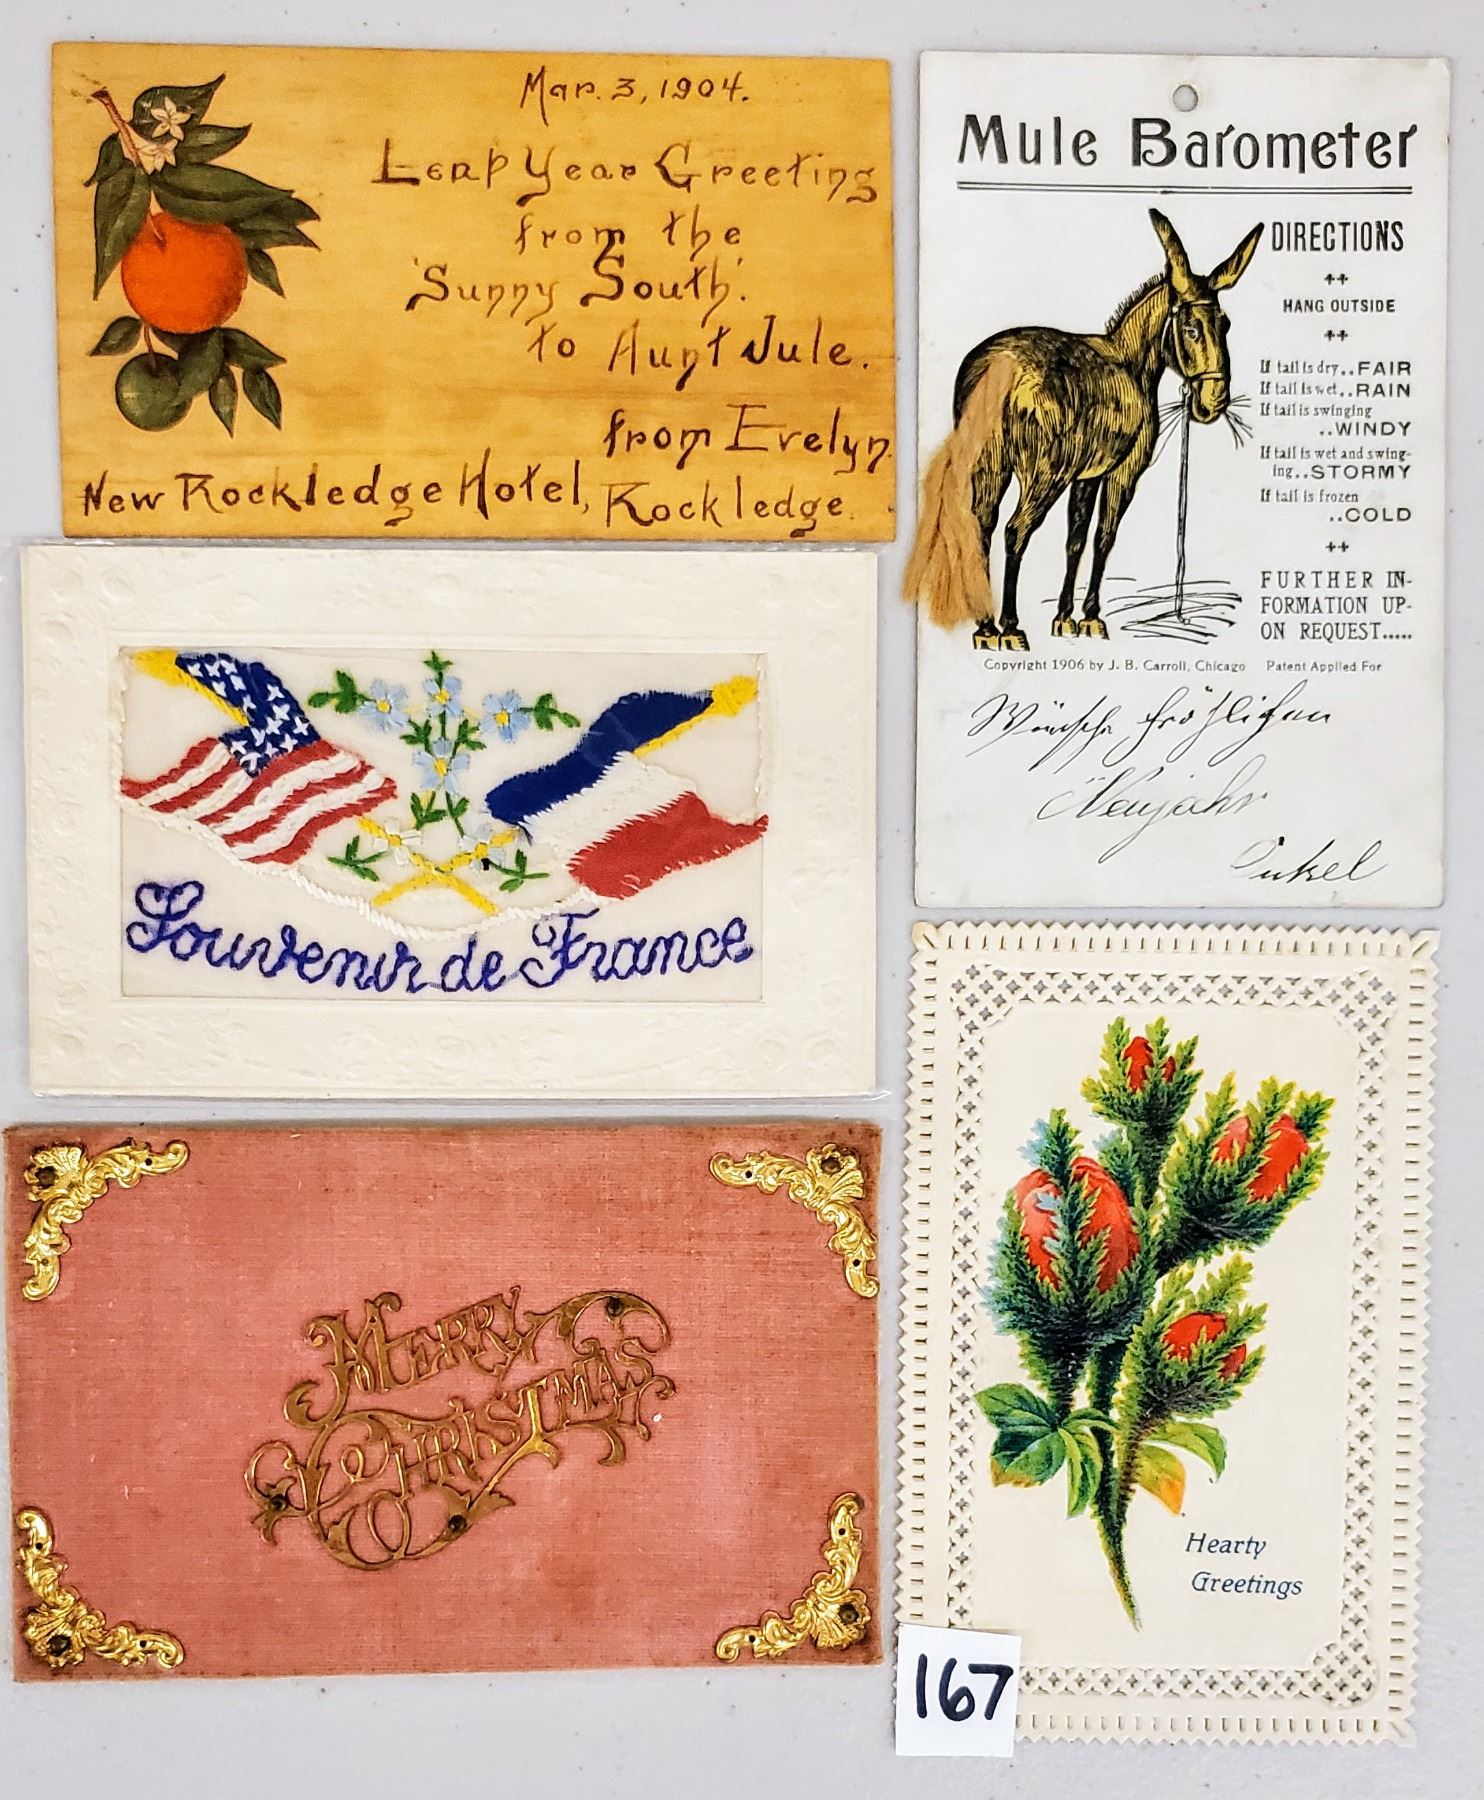 Mar. 3, 1904.
Leap Year Greeting
from the
'Sunny South'.
to Aunt Jule.
from Evelyn.
New Rockledge Hotel, Rockledge.
Mule Barometer
DIRECTIONS
HANG OUTSIDE
If tail is dry..FAIR
If tail is wet..RAIN
If tail is swinging
..WINDY
If tail is wet and swing-
ing..STORMY
If tail is frozen
..COLD
FURTHER IN-
FORMATION UP-
ON REQUEST.....
Copyright 1906 by J. B. Carroll, Chicago Patent Applied For
Wünsche fröhlichen
Neujahr
Onkel
Souvenir de France
MERRY
CHRISTMAS
Hearty
Greetings
167